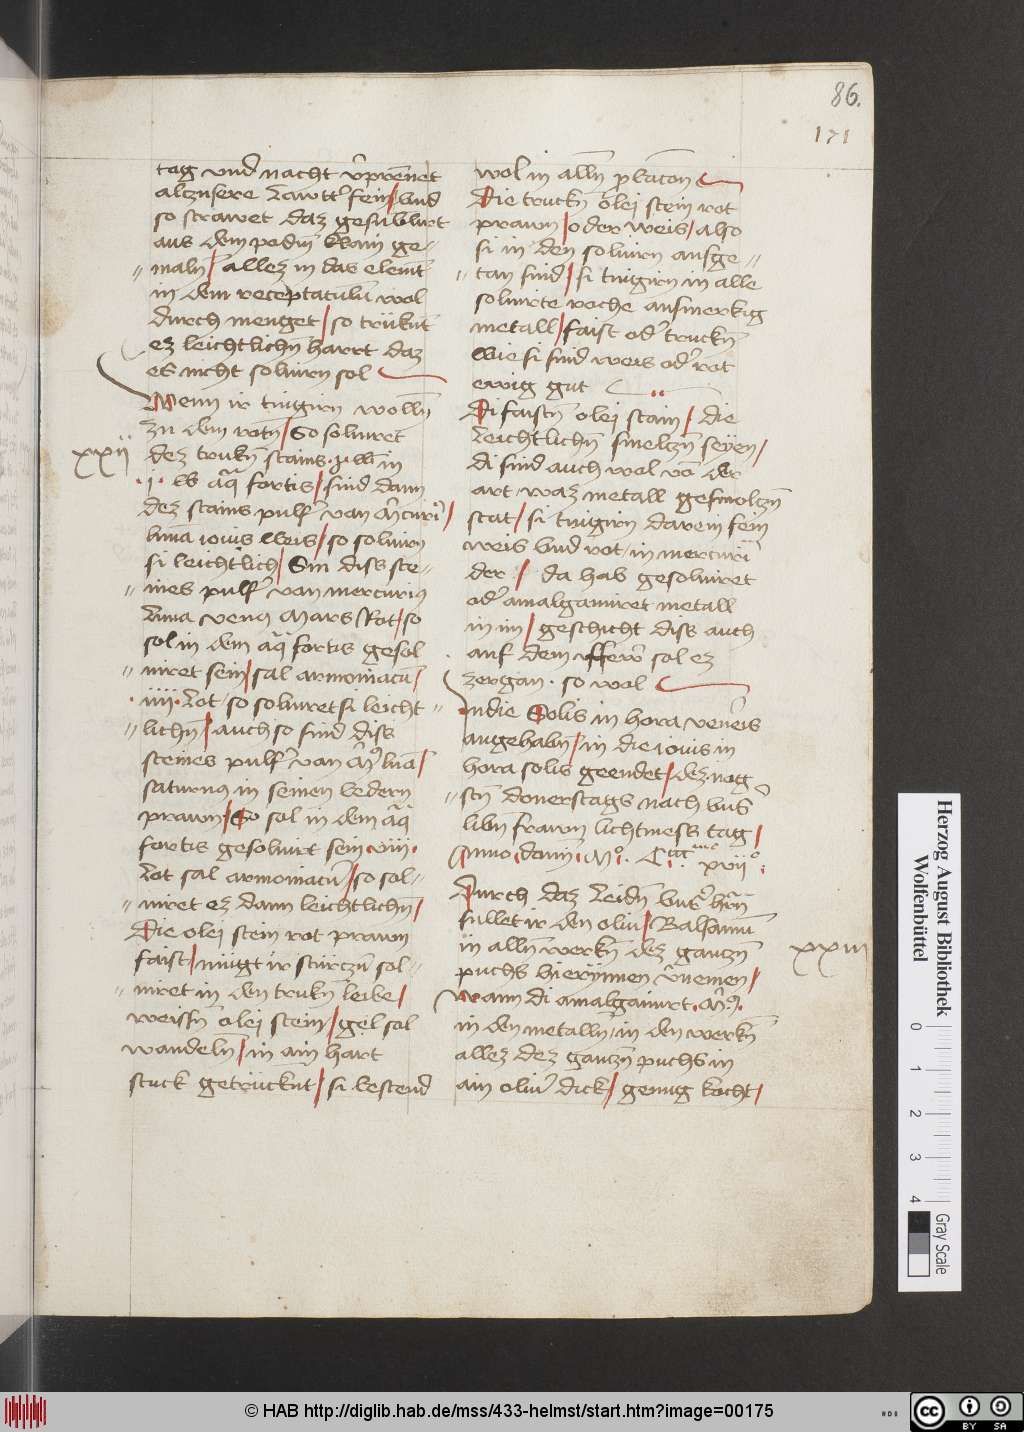 86.
171
tag vnd nacht v̂prēnet
alz vnsere lawtt' sein / vnd
so strawet daz gesublirt
aus dem pedin̄ klain ge-
maln / allez in das elemt̄
in dem receptaculū wol
durch menget / so trükn̄t
ez leichtlichn̄ hart daz
es nicht soluirn sol
Wenn ir tingirn wolln̄
zu dem rotn̄ / So soluiret
xxii
dez trukn̄ stains
in
aq̄ fortis / sind dann
dez stains pulf' van m̄curi'
luna iouis weis / so soluirn
si leichtlich / Sin diss ste-
ines pulf' van mercurius
luna venus Mars Rot / so
sol in dem aq̄ fortis gesol
uiret sein / sal armoniacū
iiii lot / so soluiret si leicht
lichn̄ / auch so sind diss
steines pulf' van luā /
saturnus in seinen ledern
prawn / So sol in dem aq̄
fortis gesoluirt sein viii
lot sal armoniacū / so sol-
uiret ez dann leichtlichn̄ /
Die olei stein rot prawn
faist / mügt ir stürczn̄ sol-
uiret in den trukn̄ leibe /
weissn̄ olei stein / gel sol
wandeln / in ain hart
stuck getrücknt / si bestend
wol in alln̄ p̱bacon
Die truckn̄ olei stein rot
prawn / oder weis / also
si in den soluirn ausge-
tan sind / si tingirn in alle
soluirte rache ausmerkig
metall / faist od' truckn̄
wie si sind weis od' rot
ewig gut
Di faistn̄ olei stain / die
leichtlichn̄ smelczn̄ seyen /
di sind auch wol vō der
art waz metall gesmolczn̄
stat / si tingirn darein sein
weis vnd rot / in mercuri
der / da hab gesoluiret
od' amalgamiret metall
in im / geschicht diss auch
auf dem ffewr̄ sol ez
zergan . so wol
In die Solis in hora veneris
angehabn̄ / in die iouis in
hora solis geendet / dez nag
stn̄ donerstags nach vns'
libn̄ frawn lichtmess tag /
Anno domi' M°. CCCC mo xvii°
Durch daz leidn̄ vns' hr̄n
fullet ir den oliu / Balsamū
in alln̄ werkn̄ dez gantzn̄
xxiii
puchs hierÿnnen v̂nemen /
Wann di amalgamirt
in den metalln̄ / in den werkn̄
allez dez gantzn̄ puchs in
ain oliu' dick / genug kocht /
Herzog August Bibliothek
Wolfenbüttel
0 1 2 3 4
Gray Scale
© HAB http://diglib.hab.de/mss/433-helmst/start.htm?image=00175
cc BY SA